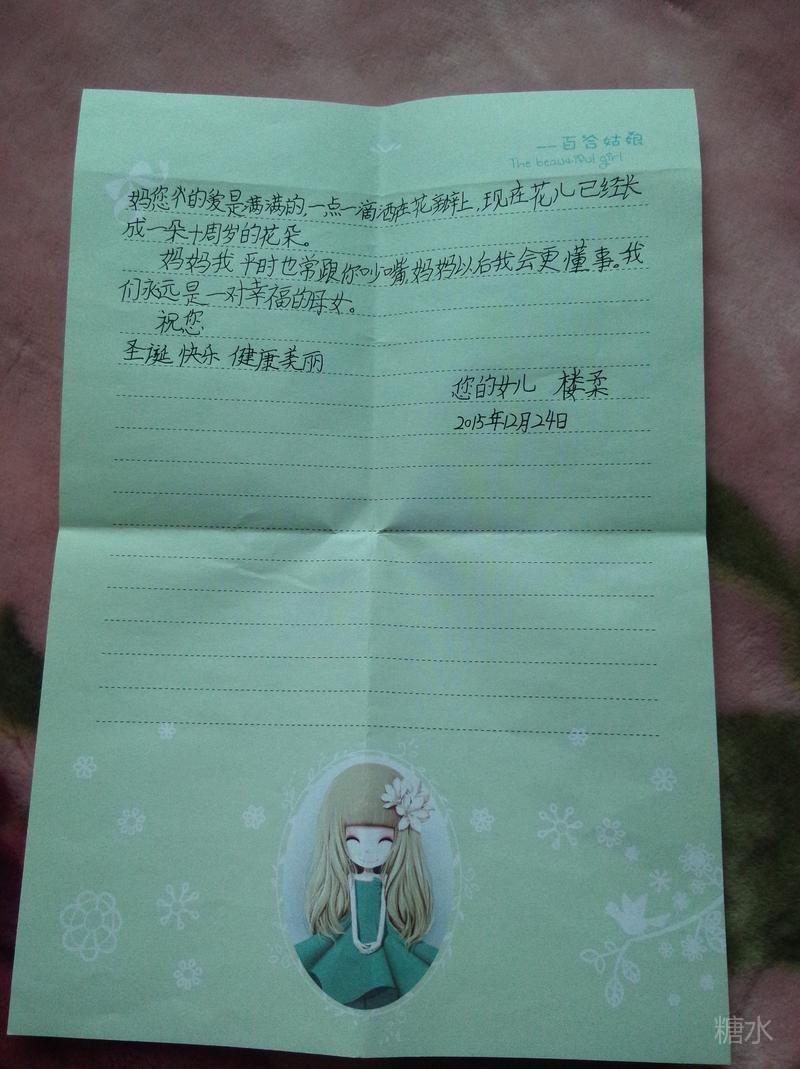 一百合姑娘
The beautiful girl
妈您我的爱是满满的,一点一滴洒在花瓣上,现在花儿已经长
成一朵十周岁的花朵。
妈妈我平时也常跟你吵嘴,妈妈以后我会更懂事。我
们永远是一对幸福的母女。
祝您
圣诞快乐 健康美丽
您的女儿 楼柔
2015年12月24日
糖水